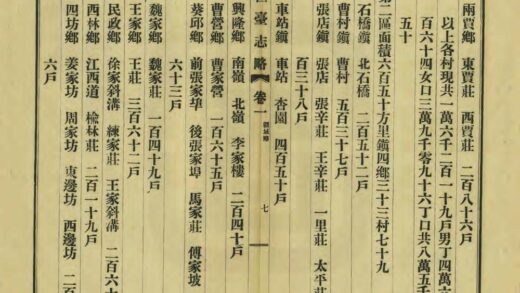 兩賈鄉 東賈莊 西賈莊 二百八十六戶
以上各村現共一萬六千二百一十九戶男丁四萬六
百六十四女口三萬九千零九十六丁口共八萬五千
五十
第二區面積六百五十方里鎮四鄉三十三村七十九
石橋鎮 北石橋 二百五十二戶
曹村鎮 曹村 五百三十七戶
張店鎮 張店 張辛莊 王辛莊 一里莊 太平莊
百三十八戶
車站鎮 車站 杏園 四百五十戶
臺志略 卷一 七
興隆鄉 南嶺 北嶺 李家樓 二百四十戶
曹營鄉 曹家營 一百六十五戶
葵邱鄉 前張家埠 後張家埠 馬家莊 傅家坡
六十三戶
魏家鄉 魏家莊 一百四十九戶
王家鄉 王莊 三百六十二戶
民政鄉 徐家斜溝 練家莊 王家斜溝 二百六十
西林鄉 江西道 楡林莊 二百一十九戶
四坊鄉 姜家坊 周家坊 東邊坊 西邊坊 二百
六戶